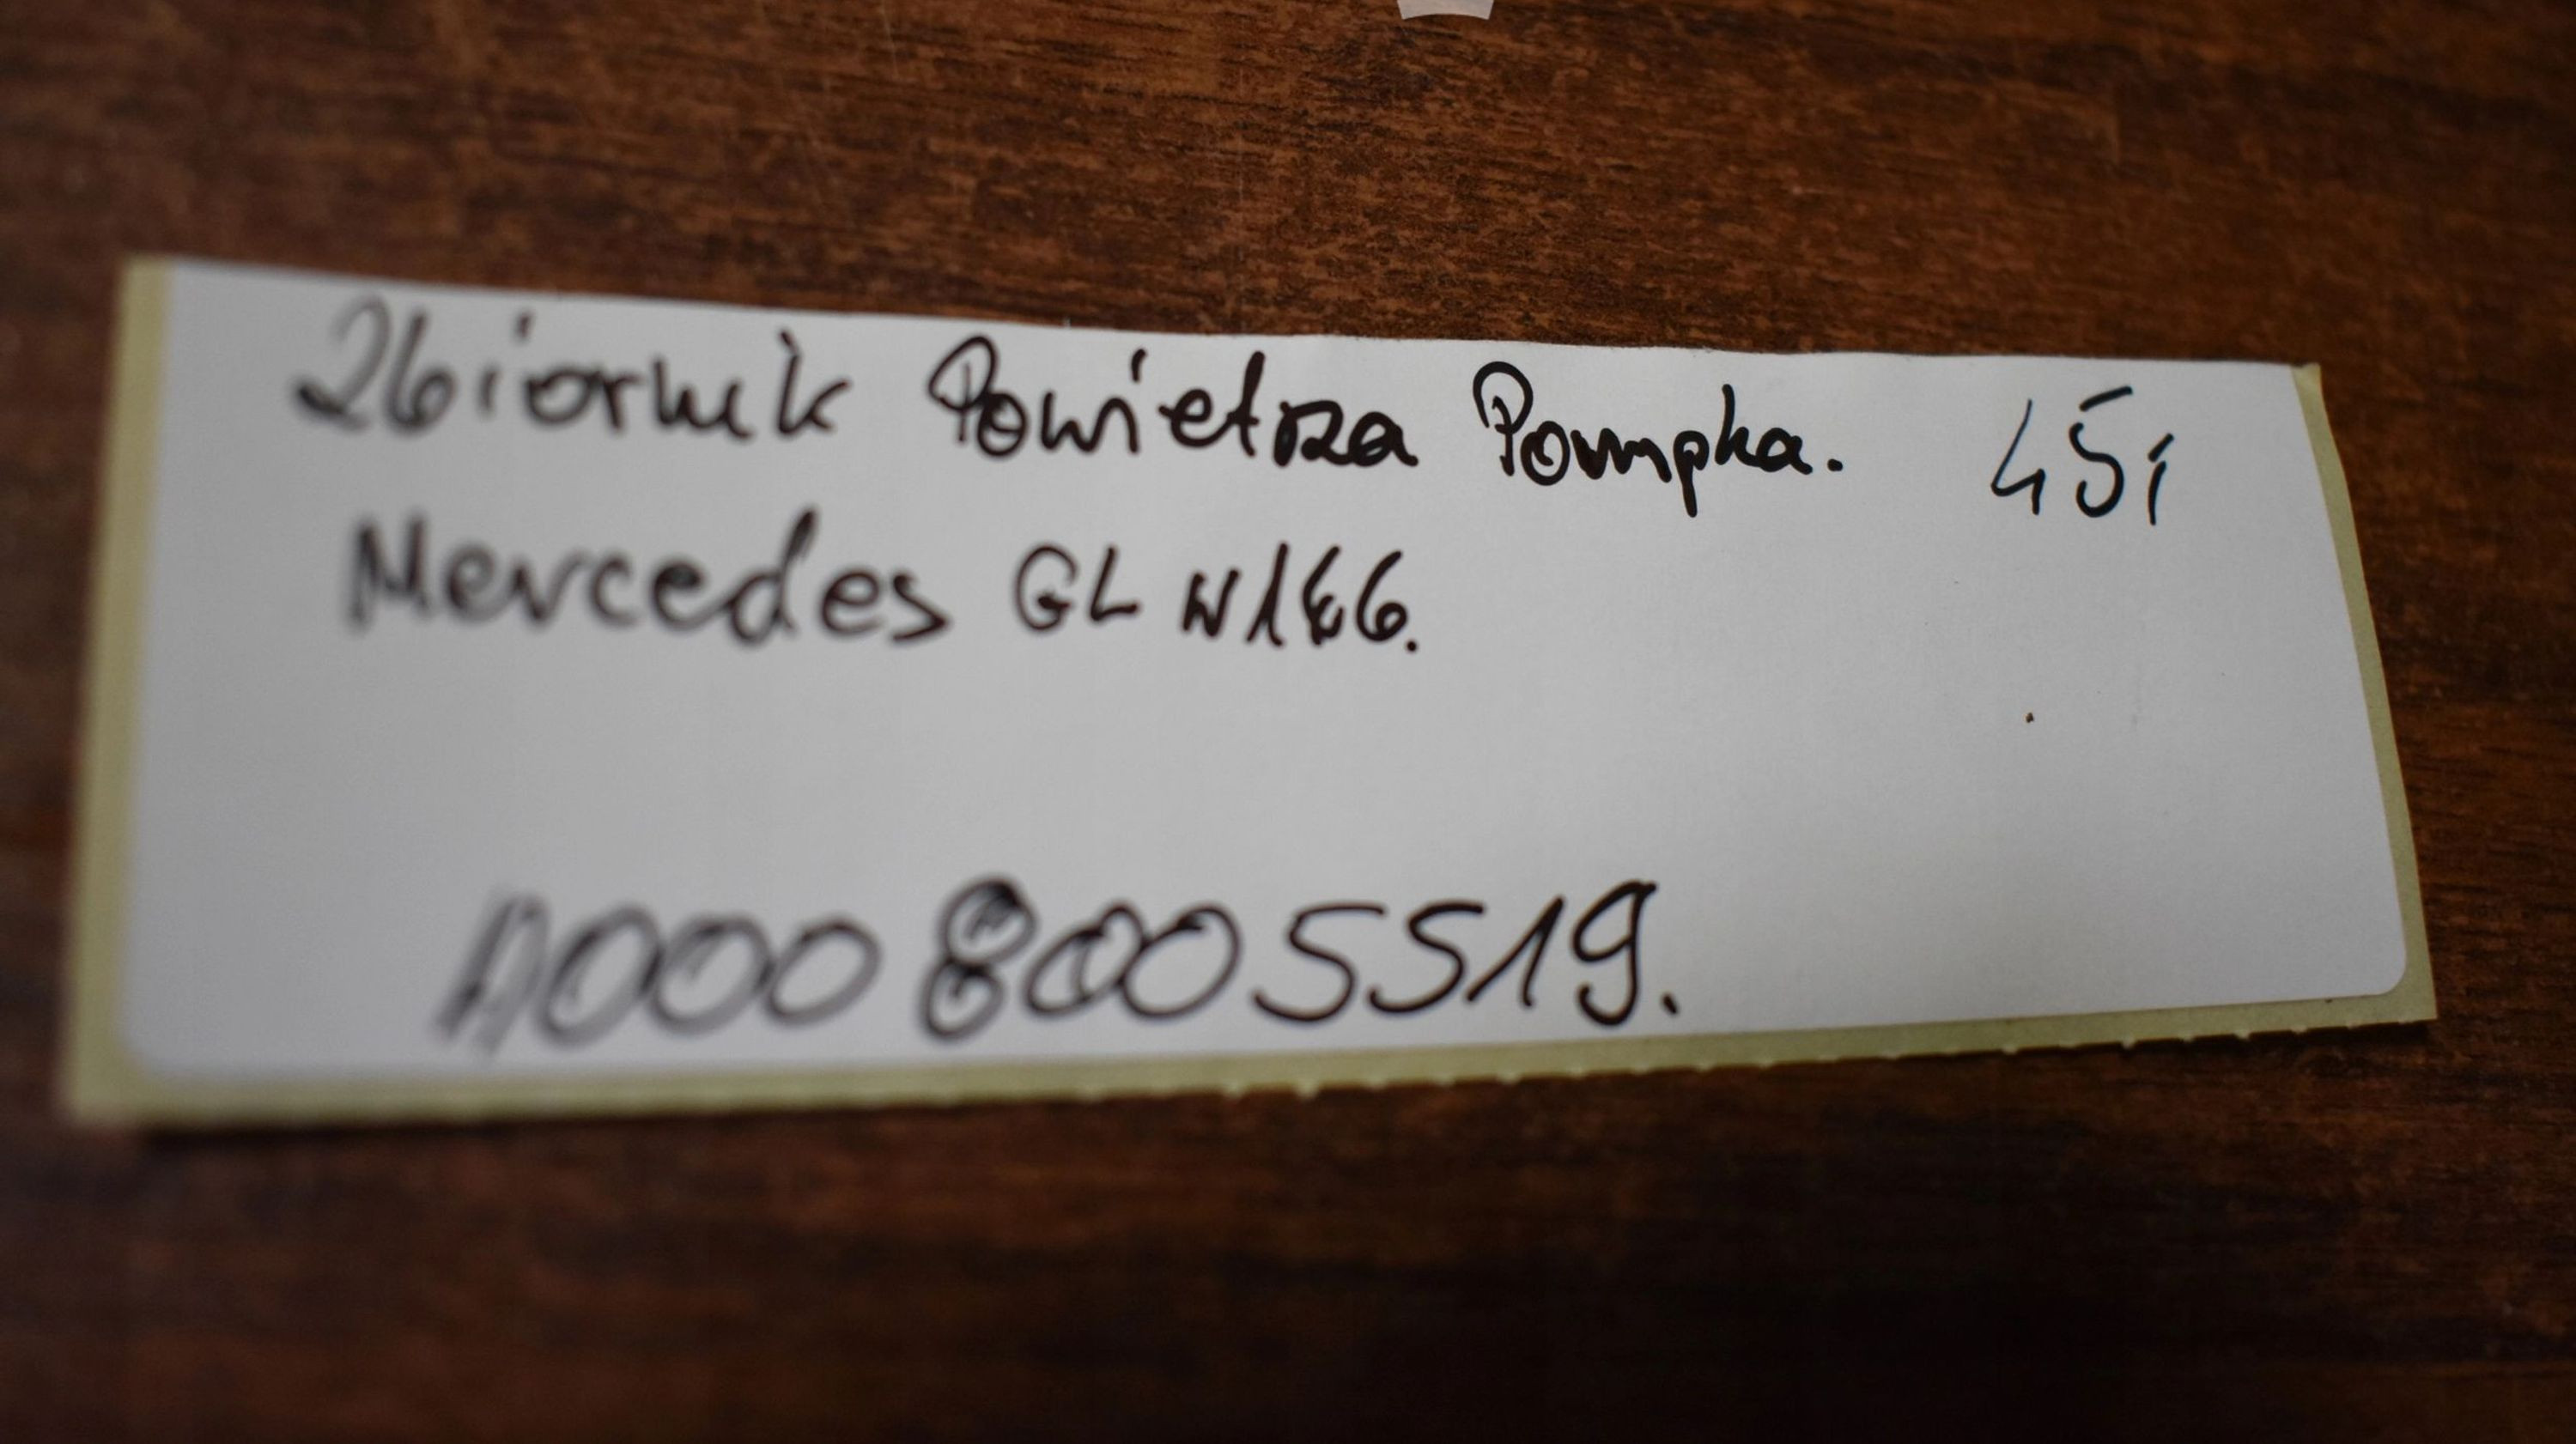 Zbiornik Powietrza Pompka. 451
Mercedes GL W166.
A000 800 5519.